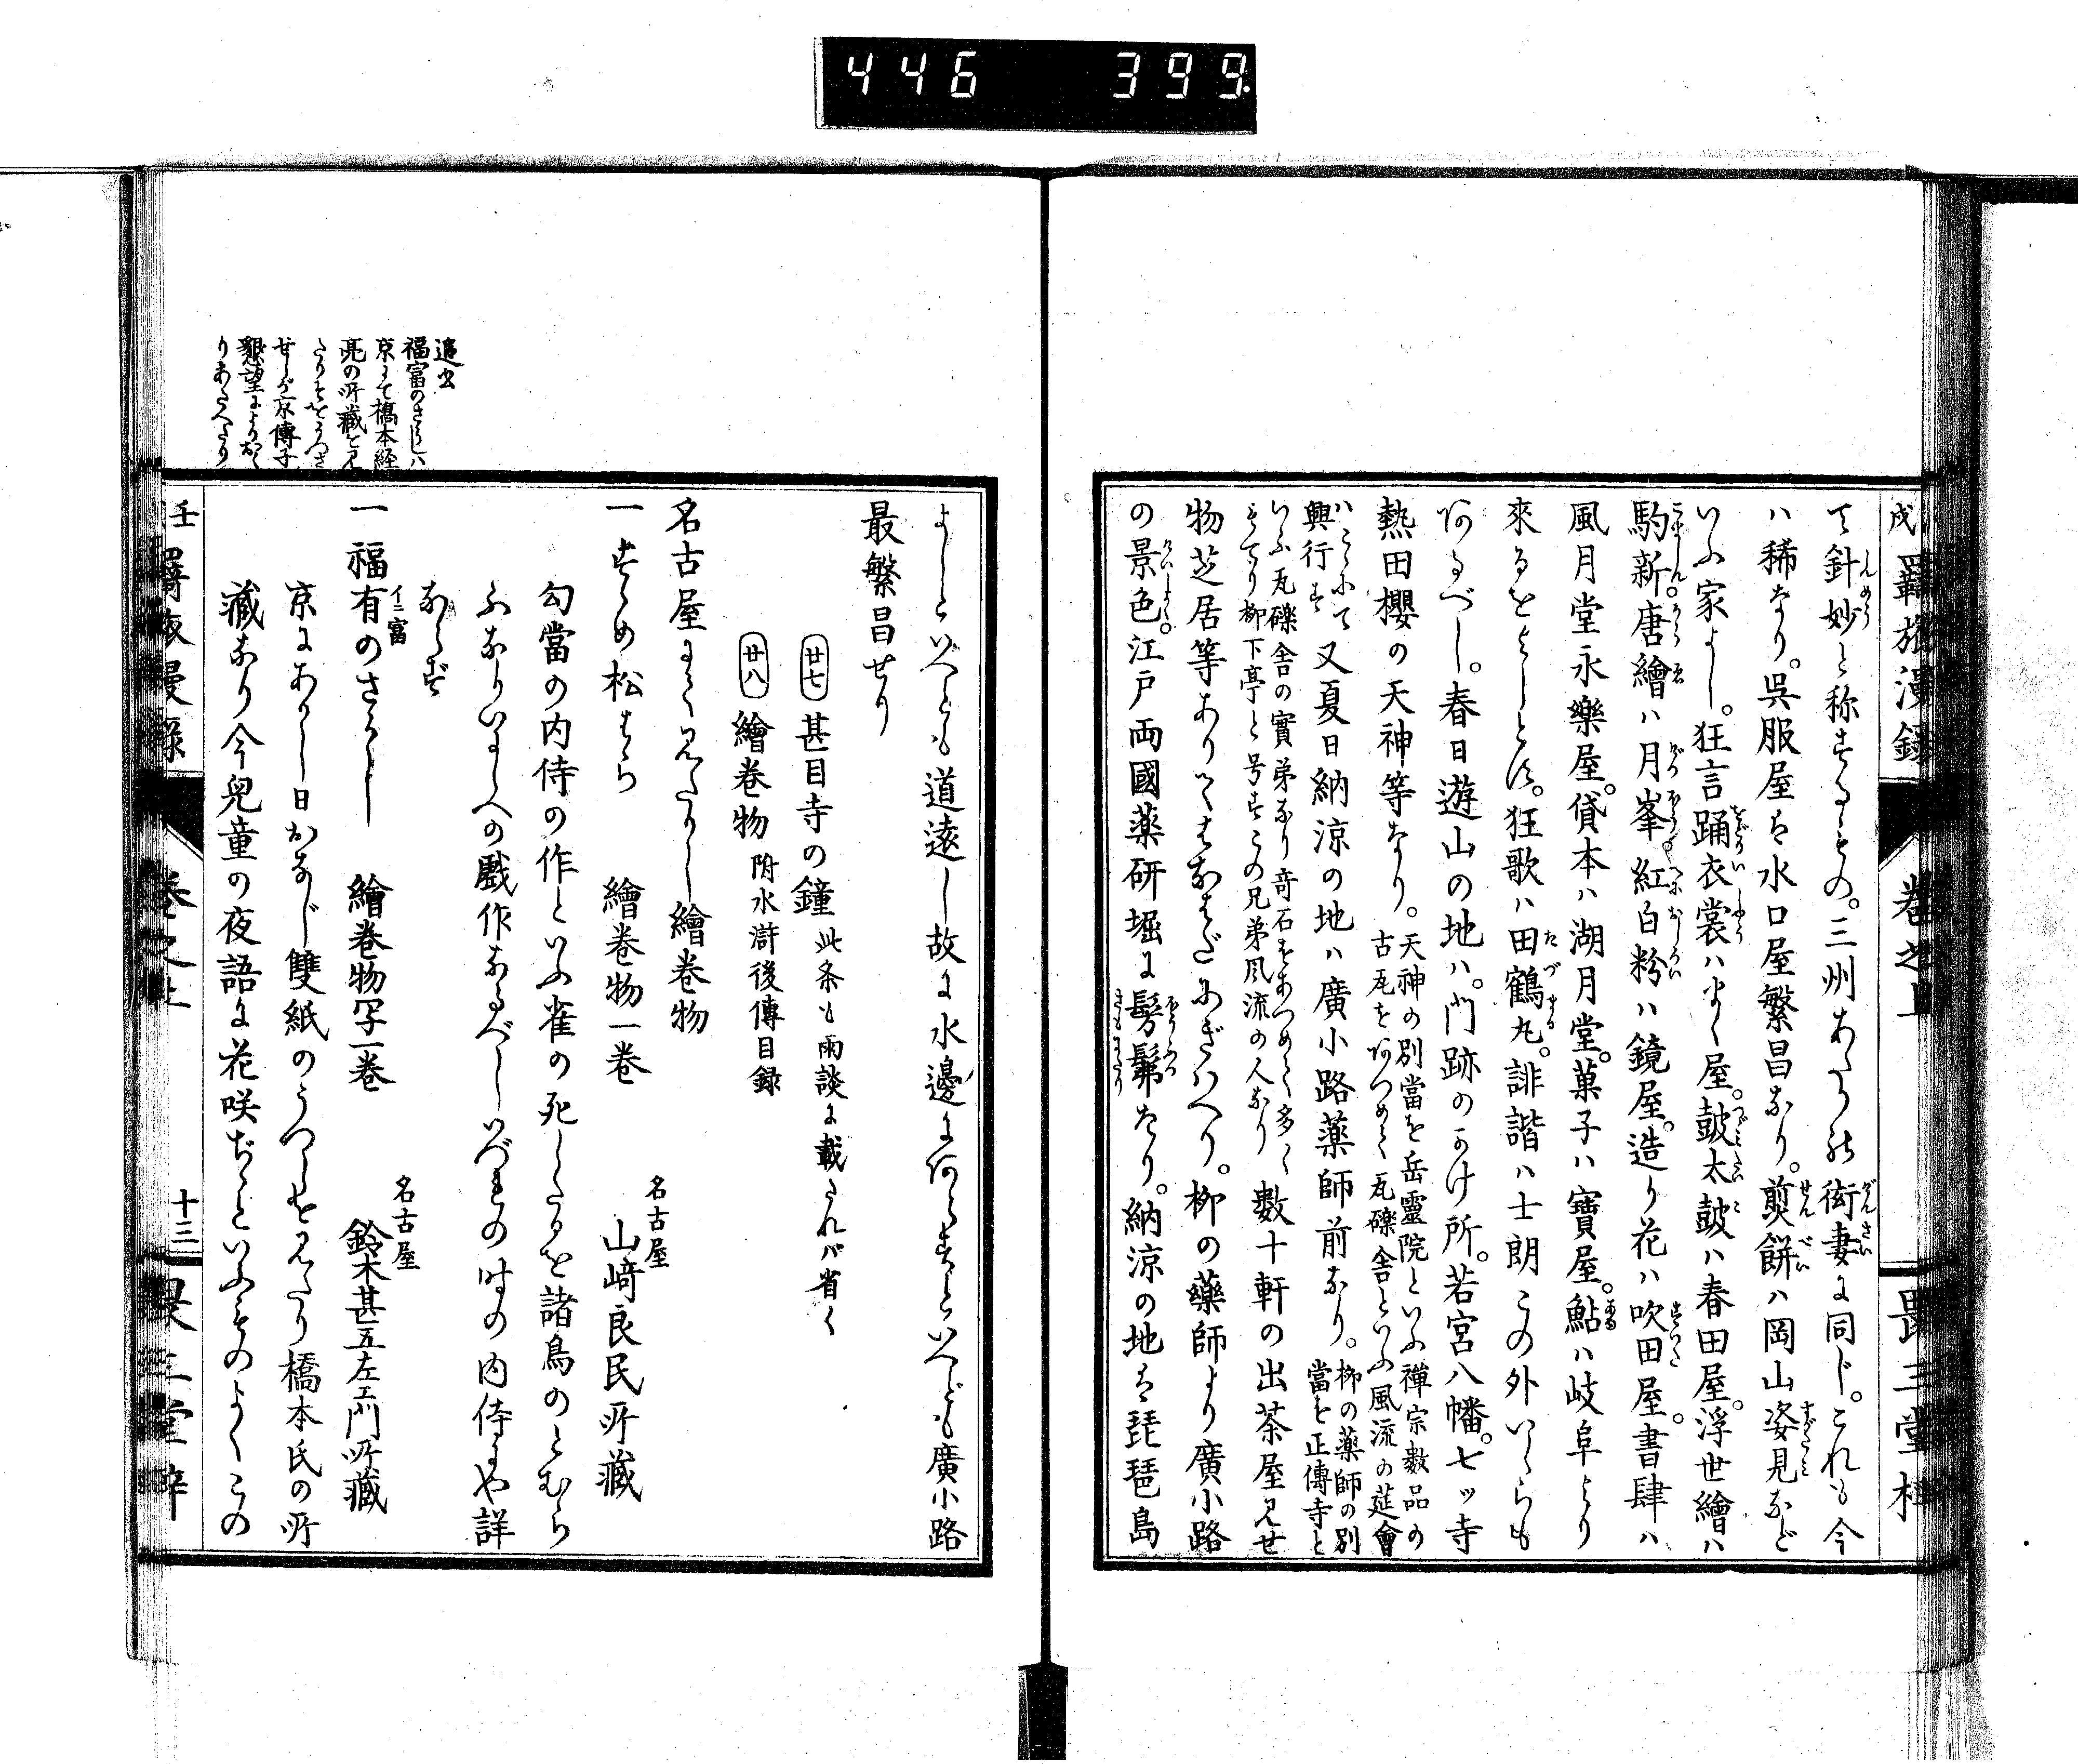 446 399
戌 羇旅漫録 巻之上
て針妙と称するもの。三州あたりの衒妻に同じ。これも今
ハ稀なり。呉服屋は水口屋繁昌なり。煎餅ハ岡山姿見など
いふ家よし。狂言踊衣裳ハ屋。皷太皷ハ春田屋。浮世繪ハ
駒新。唐繪ハ月峯。紅白粉ハ鏡屋。造り花ハ吹田屋。書肆ハ
風月堂永樂屋。貸本ハ湖月堂。菓子ハ寶屋。鮎ハ岐阜より
來るをよしとす。狂歌ハ田鶴丸。誹諧ハ士朗この外いくらも
あるべし。春日遊山の地ハ。門跡のかけ所。若宮八幡。七ッ寺
熱田櫻の天神等なり。天神の別當を岳靈院といふ禪宗數品の
古瓦をあつめて瓦礫舎といふ風流の莚會
ハこゝにて
興行す又夏日納涼の地ハ廣小路薬師前なり。柳の薬師の別
當を正傳寺と
いふ瓦礫舎の實弟なり奇石をあつめて多く
もてり柳下亭と号すこの兄弟風流の人なり數十軒の出茶屋見せ
物芝居等ありてはなはだにぎハへり。柳の藥師より廣小路
の景色。江戸両國薬研堀に髣髴たり。納涼の地は琵琶島
よしといへども道遠し故に水邊にあらずといへども廣小路
最繁昌せり
廿七 甚目寺の鐘 此条も雨談に載たれバ省く
廿八 繪巻物 附水滸後傳目録
名古屋にて見たりし繪巻物
一すゞめ松はら 繪巻物一巻 名古屋 山﨑良民所藏
勾當の内侍の作といふ雀の死したるを諸鳥のとむら
ふなりいにしへの戯作なるべしいづれの時の内侍にや詳
ならず
一福有のさうし 繪巻物写一巻 名古屋 鈴木甚五左エ門所藏
イニ富
京にありし日おなじ雙紙のうつしを見たり橋本氏の所
藏なり今兒童の夜語に花咲ぢゝといふものよくこの
追出
福富のさうしハ
京にて橋本経
亮の所藏を見
たりそをうつさ
せしが京傳子
懇望によりおく
りあたへたり
壬 羇旅漫録 巻之上 十三